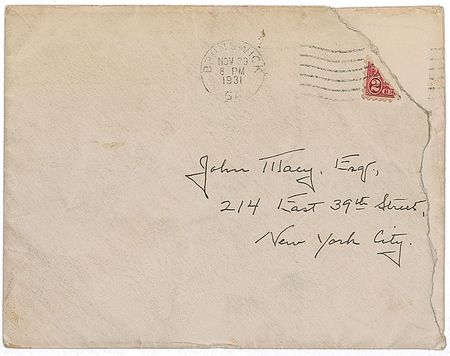 BRUNSWICK
NOV 23
8 PM
1931
GA.
2
John Macy, Esq.,
214 East 39th Street,
New York City.